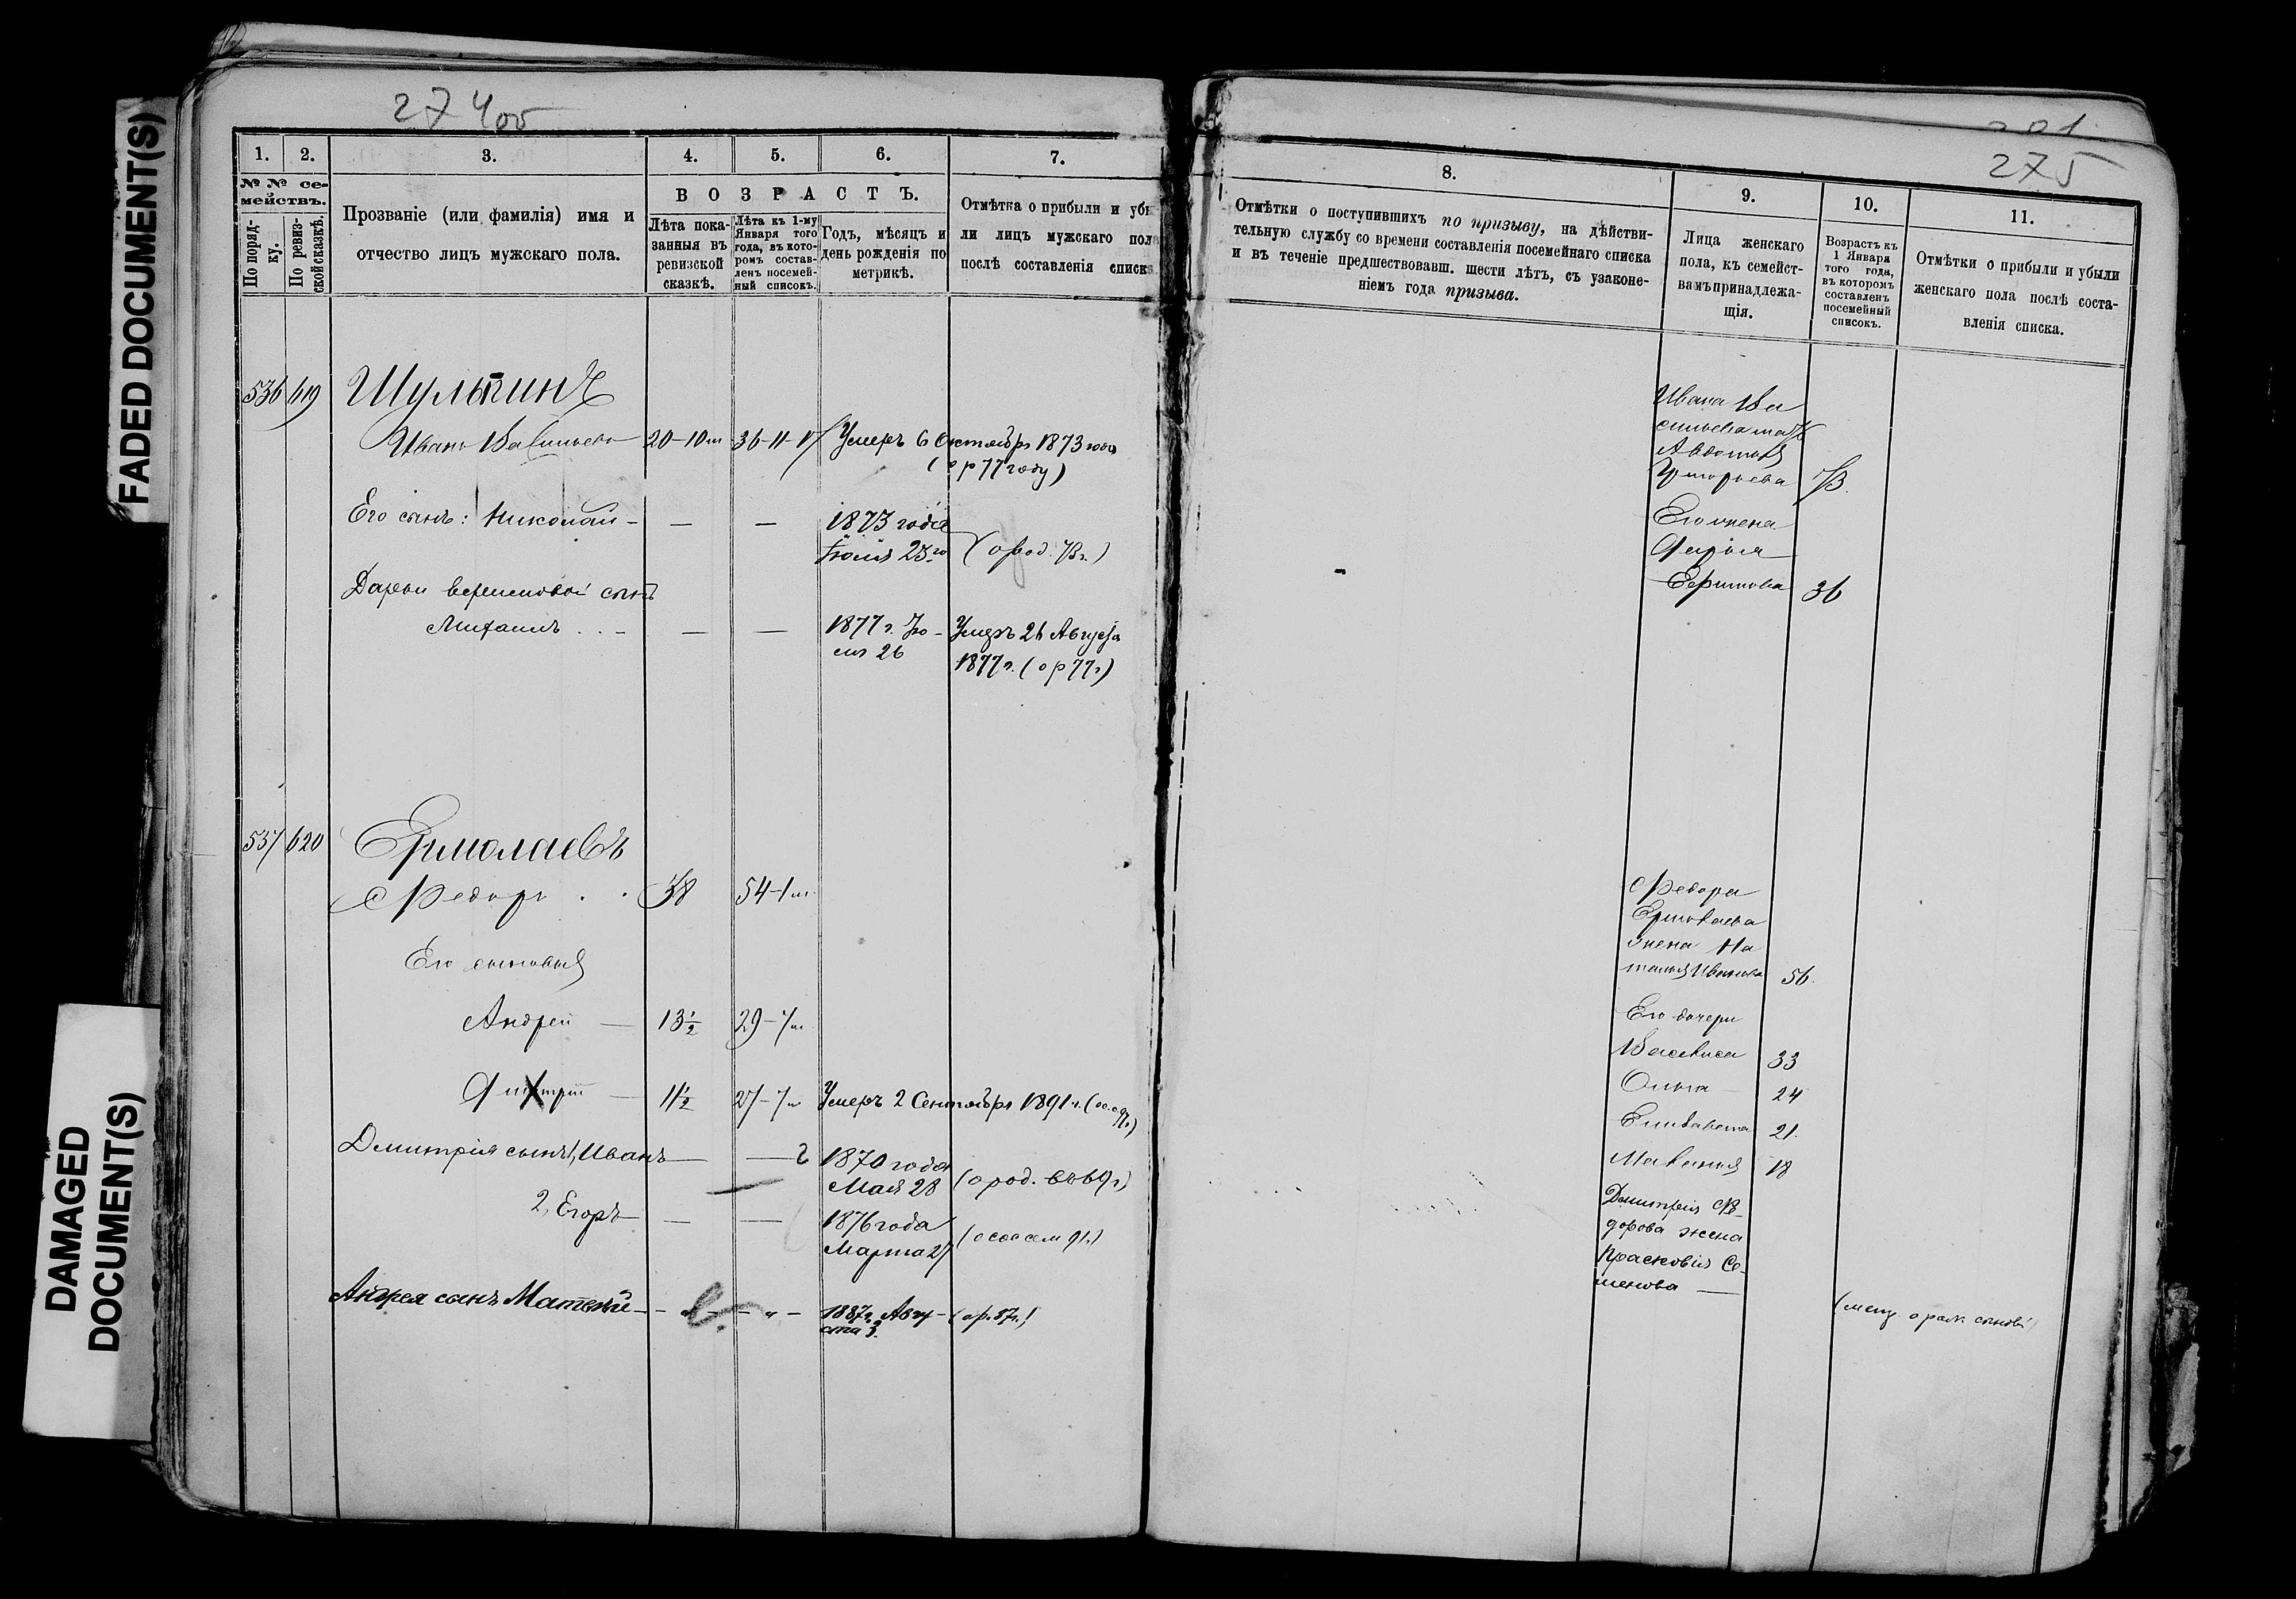 FADED DOCUMENT(S)
DAMAGED
DOCUMENT(S)
275
1. 2. 3. 4. 5. 6. 7.
№ № се-
мействъ.
По поряд-
ку.
По ревиз-
ской сказкѣ.
Прозваніе (или фамилія) имя и
отчество лицъ мужскаго пола.
ВОЗРАСТЪ.
Лѣта пока-
занныя въ
ревизской
сказкѣ.
Лѣта къ 1-му
Января того
года, въ кото-
ромъ состав-
ленъ посемей-
ный списокъ.
Годъ, мѣсяцъ и
день рожденія по
метрикѣ.
Отмѣтка о прибыли и убы
ли лицъ мужскаго пола
послѣ составленія списк
536 619
Иванъ Васильевъ 20-10м 36-11-17 Умеръ 6 Октября 1873 года
(о р 77 году)
Его сынъ: Николай - — — 1873 года
Іюля 23го (о род. 73г.)
Дарьи Ефимовой сынъ
Михаилъ . . - — — 1877 г. Ію- Умеръ 26 Августа
ля 26 1877 г. (о р 77г)
537 620 Ермолаевъ
Федоръ . . 38 54-1м.
Его сыновья
Андрей — 13½ 29-7м.
Дмитрій — 11½ 27-7м Умеръ 2 Сентября 1891 г.
Дмитрія сынъ 1, Иванъ — — 1870 года
Мая 28 (о род. въ 69г)
2, Егоръ — — — 1876 года
Марта 27 (о сос сем 91г)
Андрея сынъ Матвѣй - - 1887г. Авгу-
ста 3. (о р. 87г.)
8. 9. 10. 11.
Отмѣтки о поступившихъ по призыву, на дѣйстви-
тельную службу со времени составленія посемейнаго списка
и въ теченіе предшествовавш. шести лѣтъ, съ узаконе-
ніемъ года призыва.
Лица женскаго
пола, къ семейст-
вамъ принадлежа-
щія.
Возрастъ къ
1 Января
того года,
въ которомъ
составленъ
посемейный
списокъ.
Отмѣтки о прибыли и убыли
женскаго пола послѣ соста-
вленія списка.
Ивана Ва
сильева мать
Авдотья
Григорьева 73.
Его жена
Дарья
Ефимова 36
Федора
Ермолаева
жена На
талья Иванова 56.
Его дочери
Василиса 33
Ольга 24
Елизавета 21.
Маланья 18
Дмитрія Фе-
дорова жена
Прасковія Се-
менова —